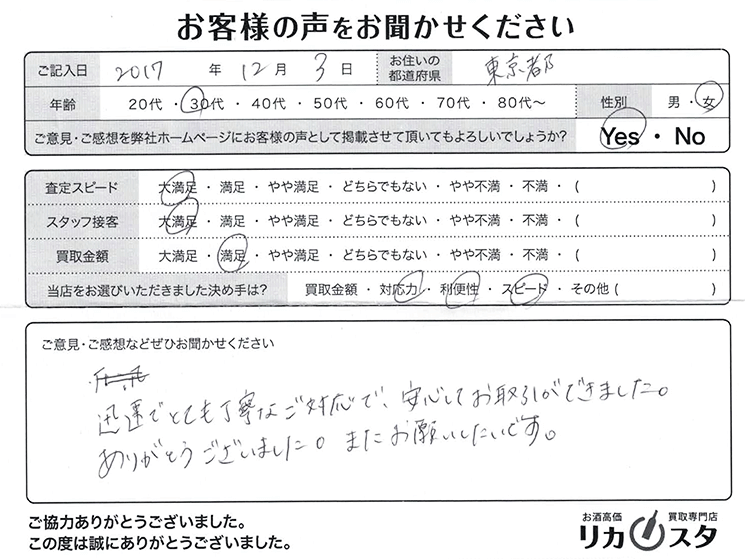 お客様の声をお聞かせください
ご記入日 2017 年 12 月 3 日 お住いの都道府県 東京都
年齢 20代 ・ 30代 ・ 40代 ・ 50代 ・ 60代 ・ 70代 ・ 80代〜 性別 男 ・ 女
ご意見・ご感想を弊社ホームページにお客様の声として掲載させて頂いてもよろしいでしょうか? Yes ・ No
査定スピード 大満足 ・ 満足 ・ やや満足 ・ どちらでもない ・ やや不満 ・ 不満 ・ ( )
スタッフ接客 大満足 ・ 満足 ・ やや満足 ・ どちらでもない ・ やや不満 ・ 不満 ・ ( )
買取金額 大満足 ・ 満足 ・ やや満足 ・ どちらでもない ・ やや不満 ・ 不満 ・ ( )
当店をお選びいただきました決め手は? 買取金額 ・ 対応力 ・ 利便性 ・ スピード ・ その他 ( )
ご意見・ご感想などぜひお聞かせください
迅速でとても丁寧なご対応で、安心してお取引ができました。
ありがとうございました。またお願いしたいです。
ご協力ありがとうございました。
この度は誠にありがとうございました。
お酒高価 買取専門店
リカスタ